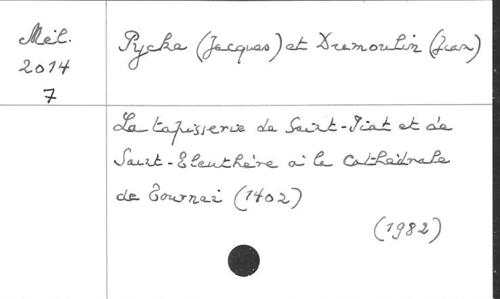 Mél.
2014
7
Pycke (Jacques) et Dumoulin (Jean)
La tapisserie de Saint-Piat et de
Saint-Eleuthère à la Cathédrale
de Tournai (1402)
(1982)